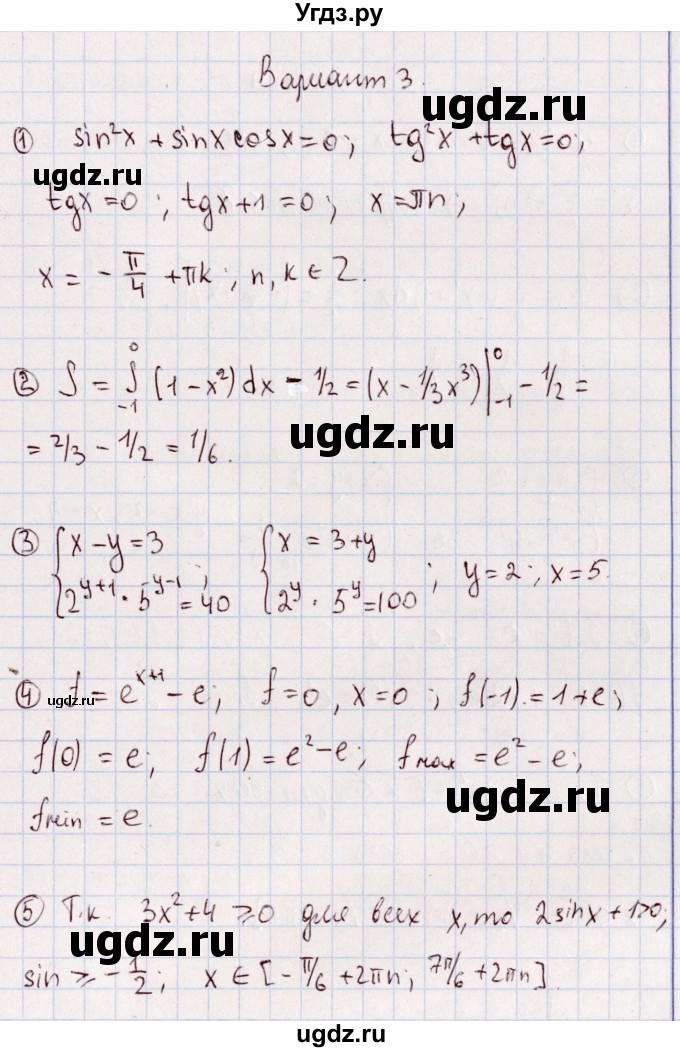 Угдз.ру
Вариант 3.
ugdz.ru
① sin²x + sinx cosx = 0; tg²x + tgx = 0;
ugdz.ru
tgx = 0; tgx + 1 = 0; x = πn;
x = - π/4 + πk; n, k ∈ Z.
② S = ∫₋₁⁰ (1 - x²) dx - 1/2 = (x - 1/3x³)|₋₁⁰ - 1/2 =
ugdz.ru
= 2/3 - 1/2 = 1/6.
③ { x - y = 3 { x = 3 + y
2^(y+1) · 5^(y-1) = 40 ; 2^y · 5^y = 100 ; y = 2; x = 5.
ugdz.ru
④ f = e^(x+1) - e; f = 0, x = 0; f(-1) = 1 + e;
f(0) = e; f(1) = e² - e; f max = e² - e;
ugdz.ru
f min = e.
⑤ Т.к. 3x² + 4 ⩾ 0 для всех x, то 2sinx + 1 > 0;
ugdz.ru
sin ⩾ - 1/2; x ∈ [- π/6 + 2πn; 7π/6 + 2πn].
ugdz.ru